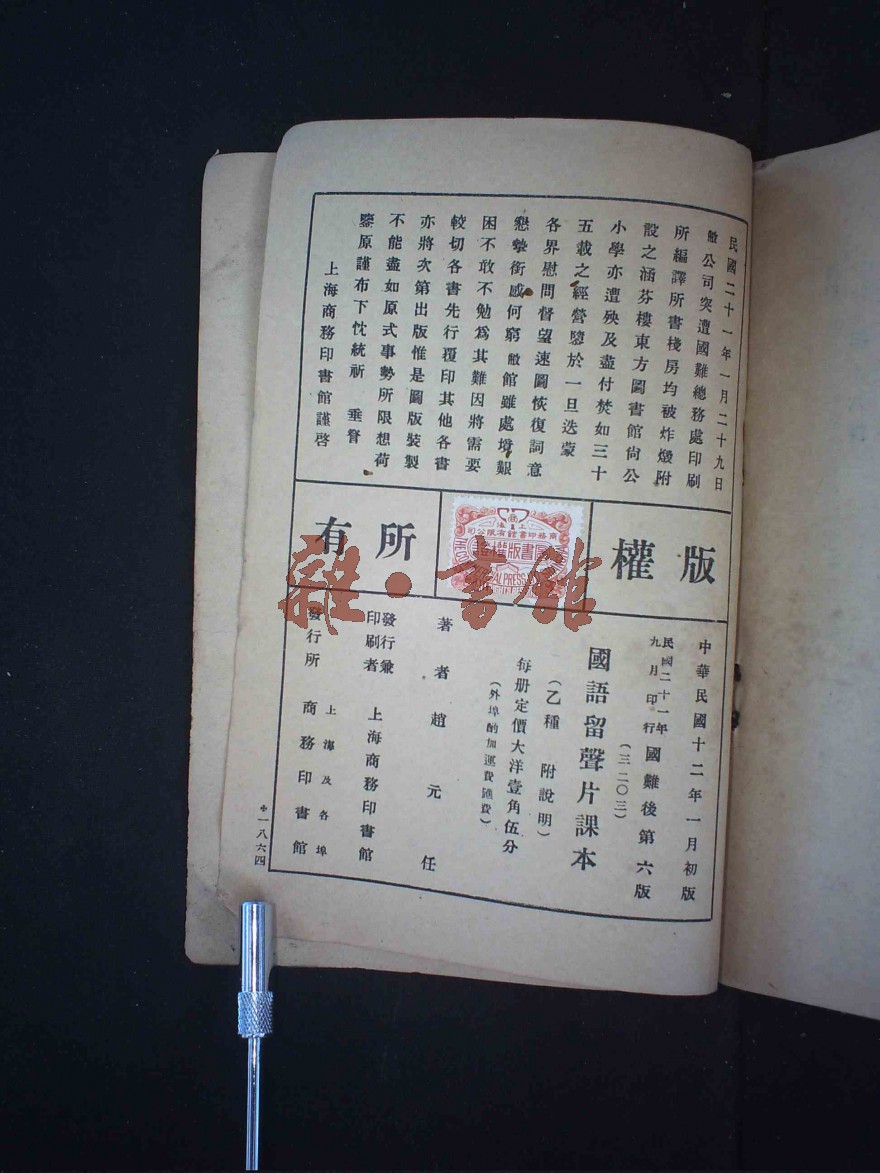 民國二十一年一月二十九日
敝公司突遭國難總務處印刷
所編譯所書棧房均被炸燬附
設之涵芬樓東方圖書館尚公
小學亦遭殃及盡付焚如三十
五載之經營隳於一旦迭蒙
各界慰問督望速圖恢復詞意
懇摯銜感何窮敝館雖處境艱
困不敢不勉爲其難因將需要
較切各書先行覆印其他各書
亦將次第出版惟是圖版裝製
不能盡如原式事勢所限想荷
鑒原謹布下忱統祈 垂詧
上海商務印書館謹啓
版權所有
上海
商務印書館有限公司
書版權
中華民國十二年一月初版
民國二十一年九月印行 國難後第六版
(三二〇三)
國語留聲片課本
(乙種 附說明)
每册定價大洋壹角伍分
(外埠酌加運費匯費)
著者 趙元任
發行兼印刷者 上海商務印書館
發行所 上海及各埠 商務印書館
一八六四
雜·書館